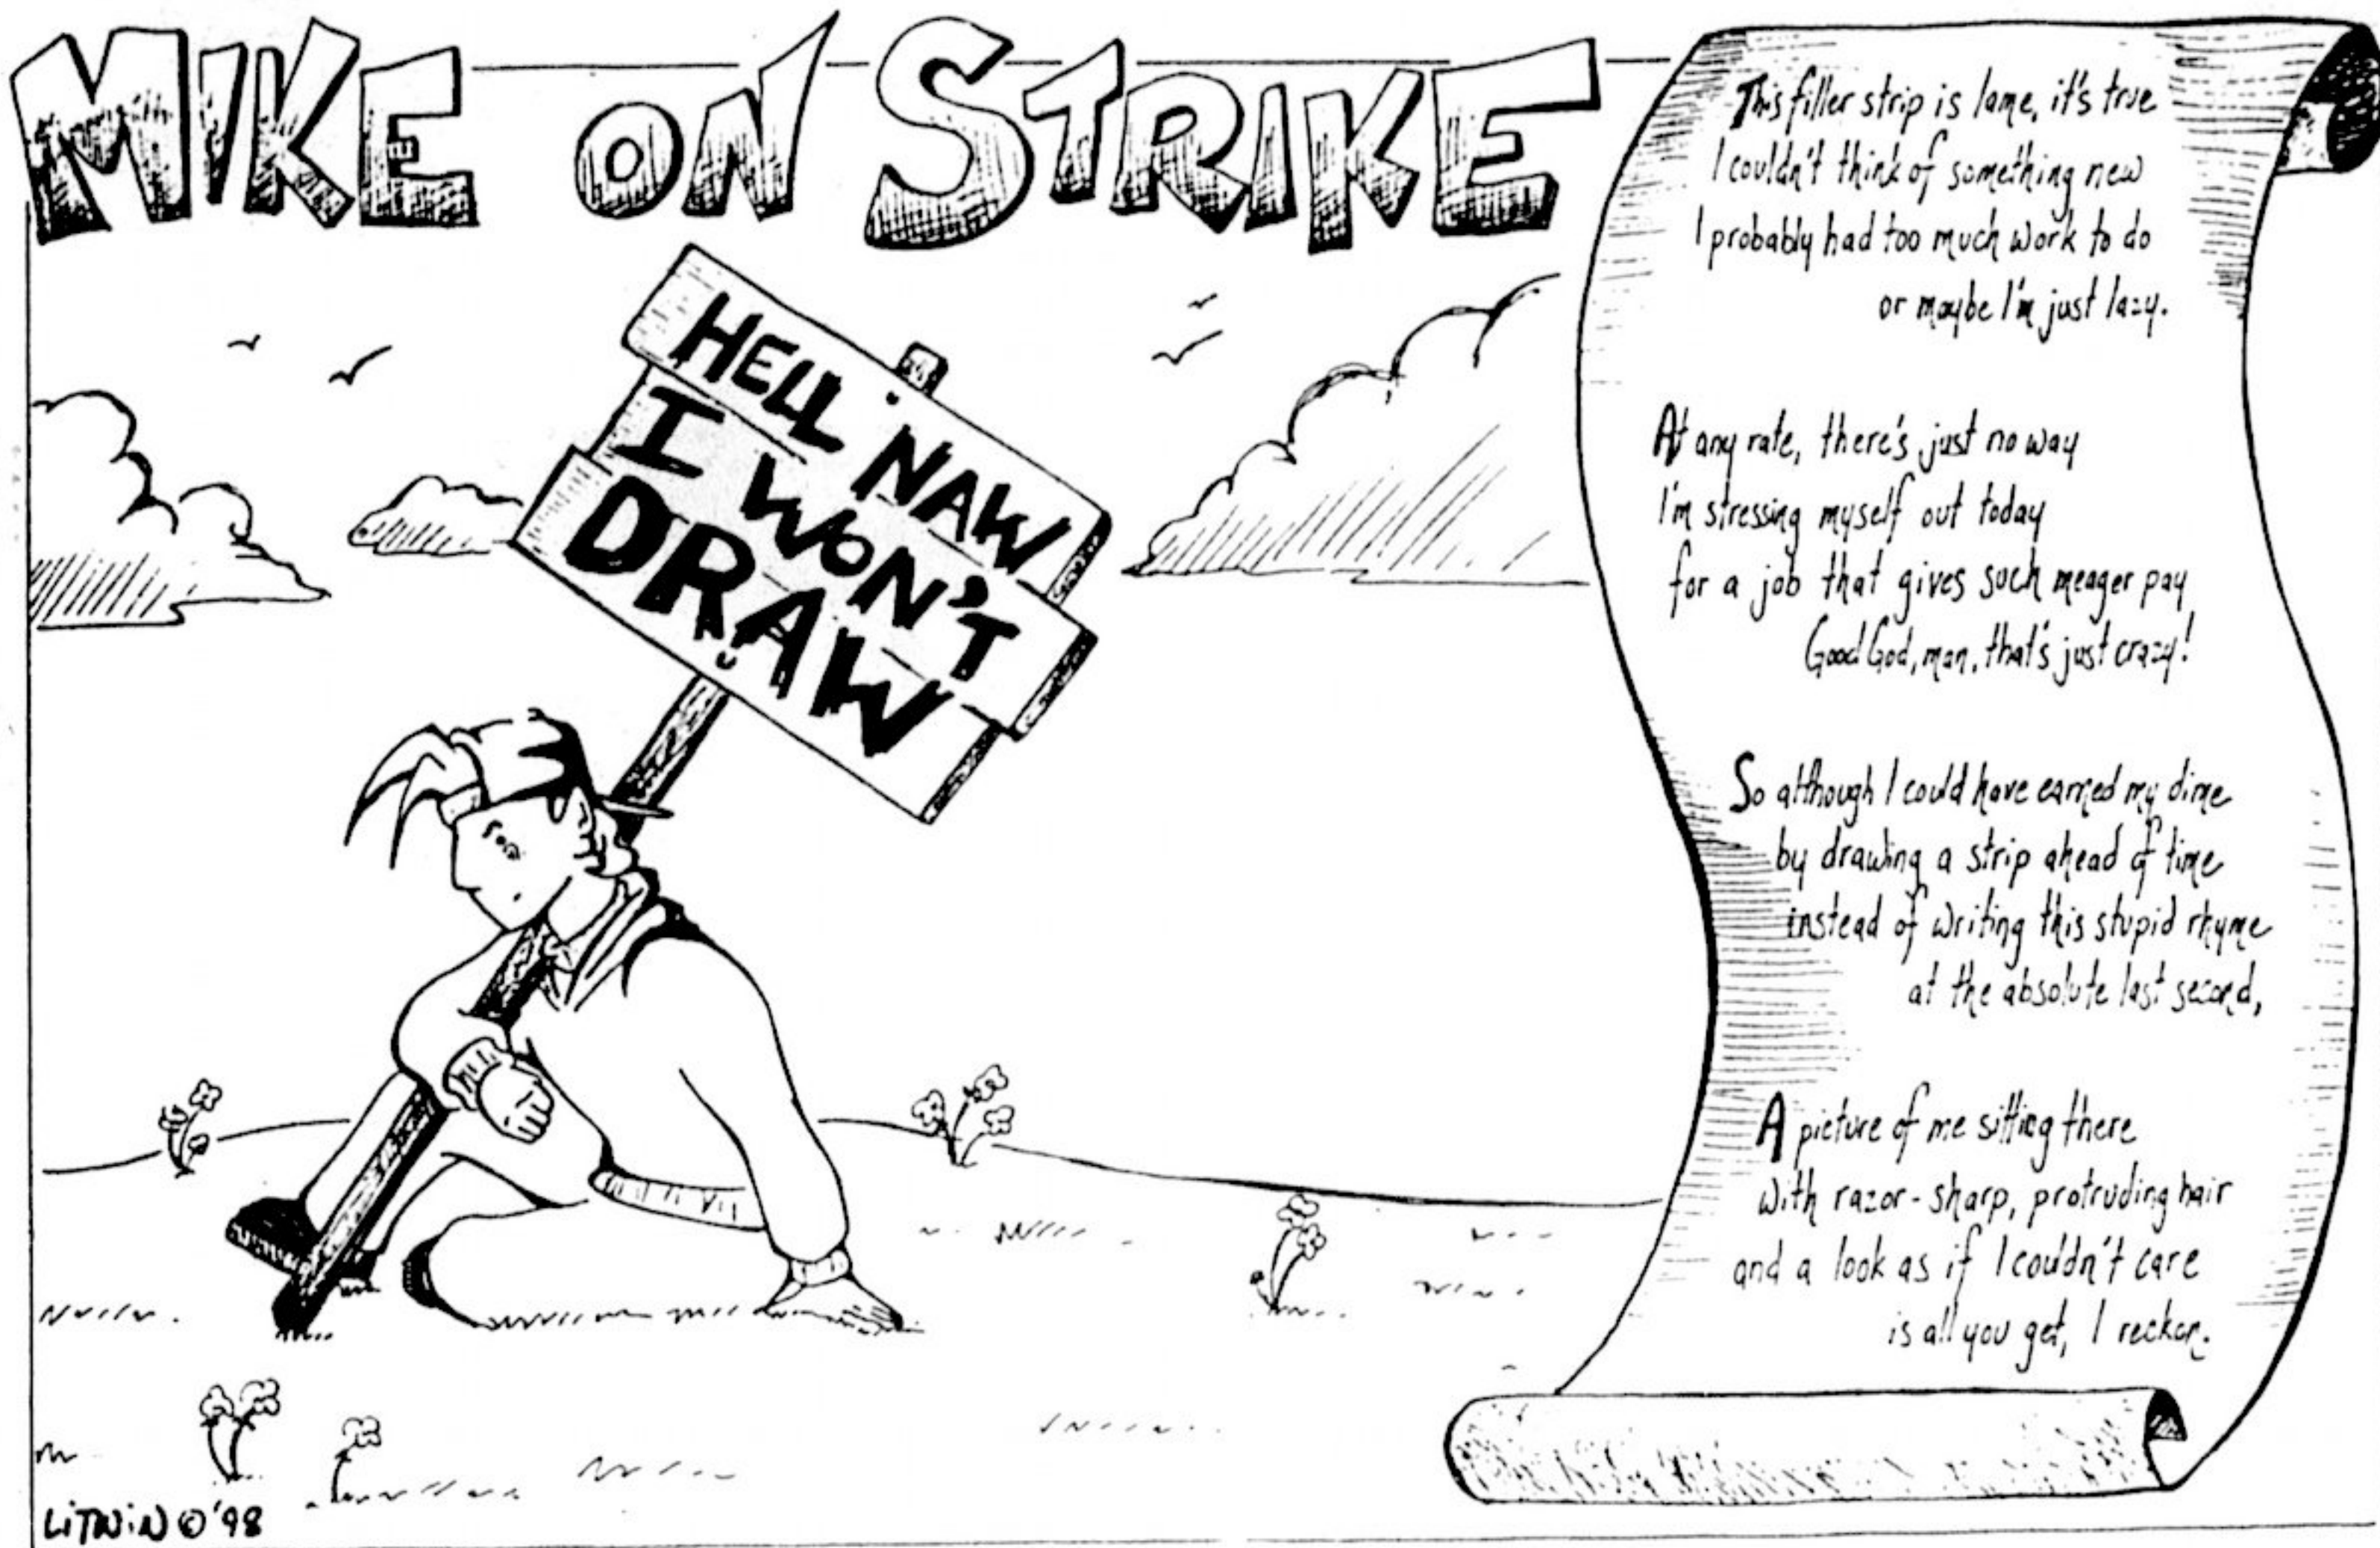 MIKE ON STRIKE
HELL NAW
I WON'T
DRAW
This filler strip is lame, it's true
I couldn't think of something new
I probably had too much work to do
or maybe I'm just lazy.
At any rate, there's just no way
I'm stressing myself out today
for a job that gives such meager pay
Good God, man, that's just crazy!
So although I could have earned my dime
by drawing a strip ahead of time
instead of writing this stupid rhyme
at the absolute last second,
A picture of me sitting there
with razor-sharp, protruding hair
and a look as if I couldn't care
is all you get, I reckon.
LiTWiN © '98